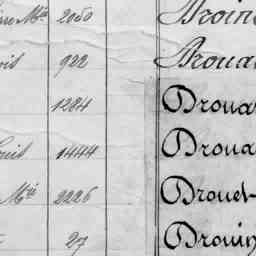 Mie 2050 Droin
922 Droua
1284 Droua
1444 Droua
Mie 2226 Drouet
27 Drouin